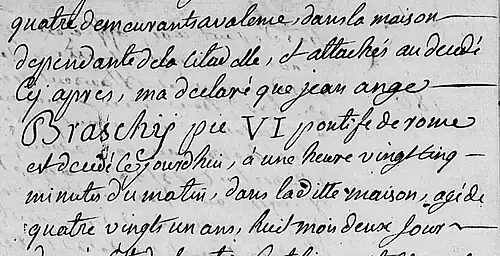 quatre demeurants a valence, dans la maison
dependante de la citadelle, et attachés au decedé
cy apres, m'a declaré que jean ange
Braschij pie VI pontife de rome
est decedé ce jourdhui, à une heure vingt cinq
minutes du matin, dans la ditte maison, agé de
quatre vingts un ans, huit mois deux jours